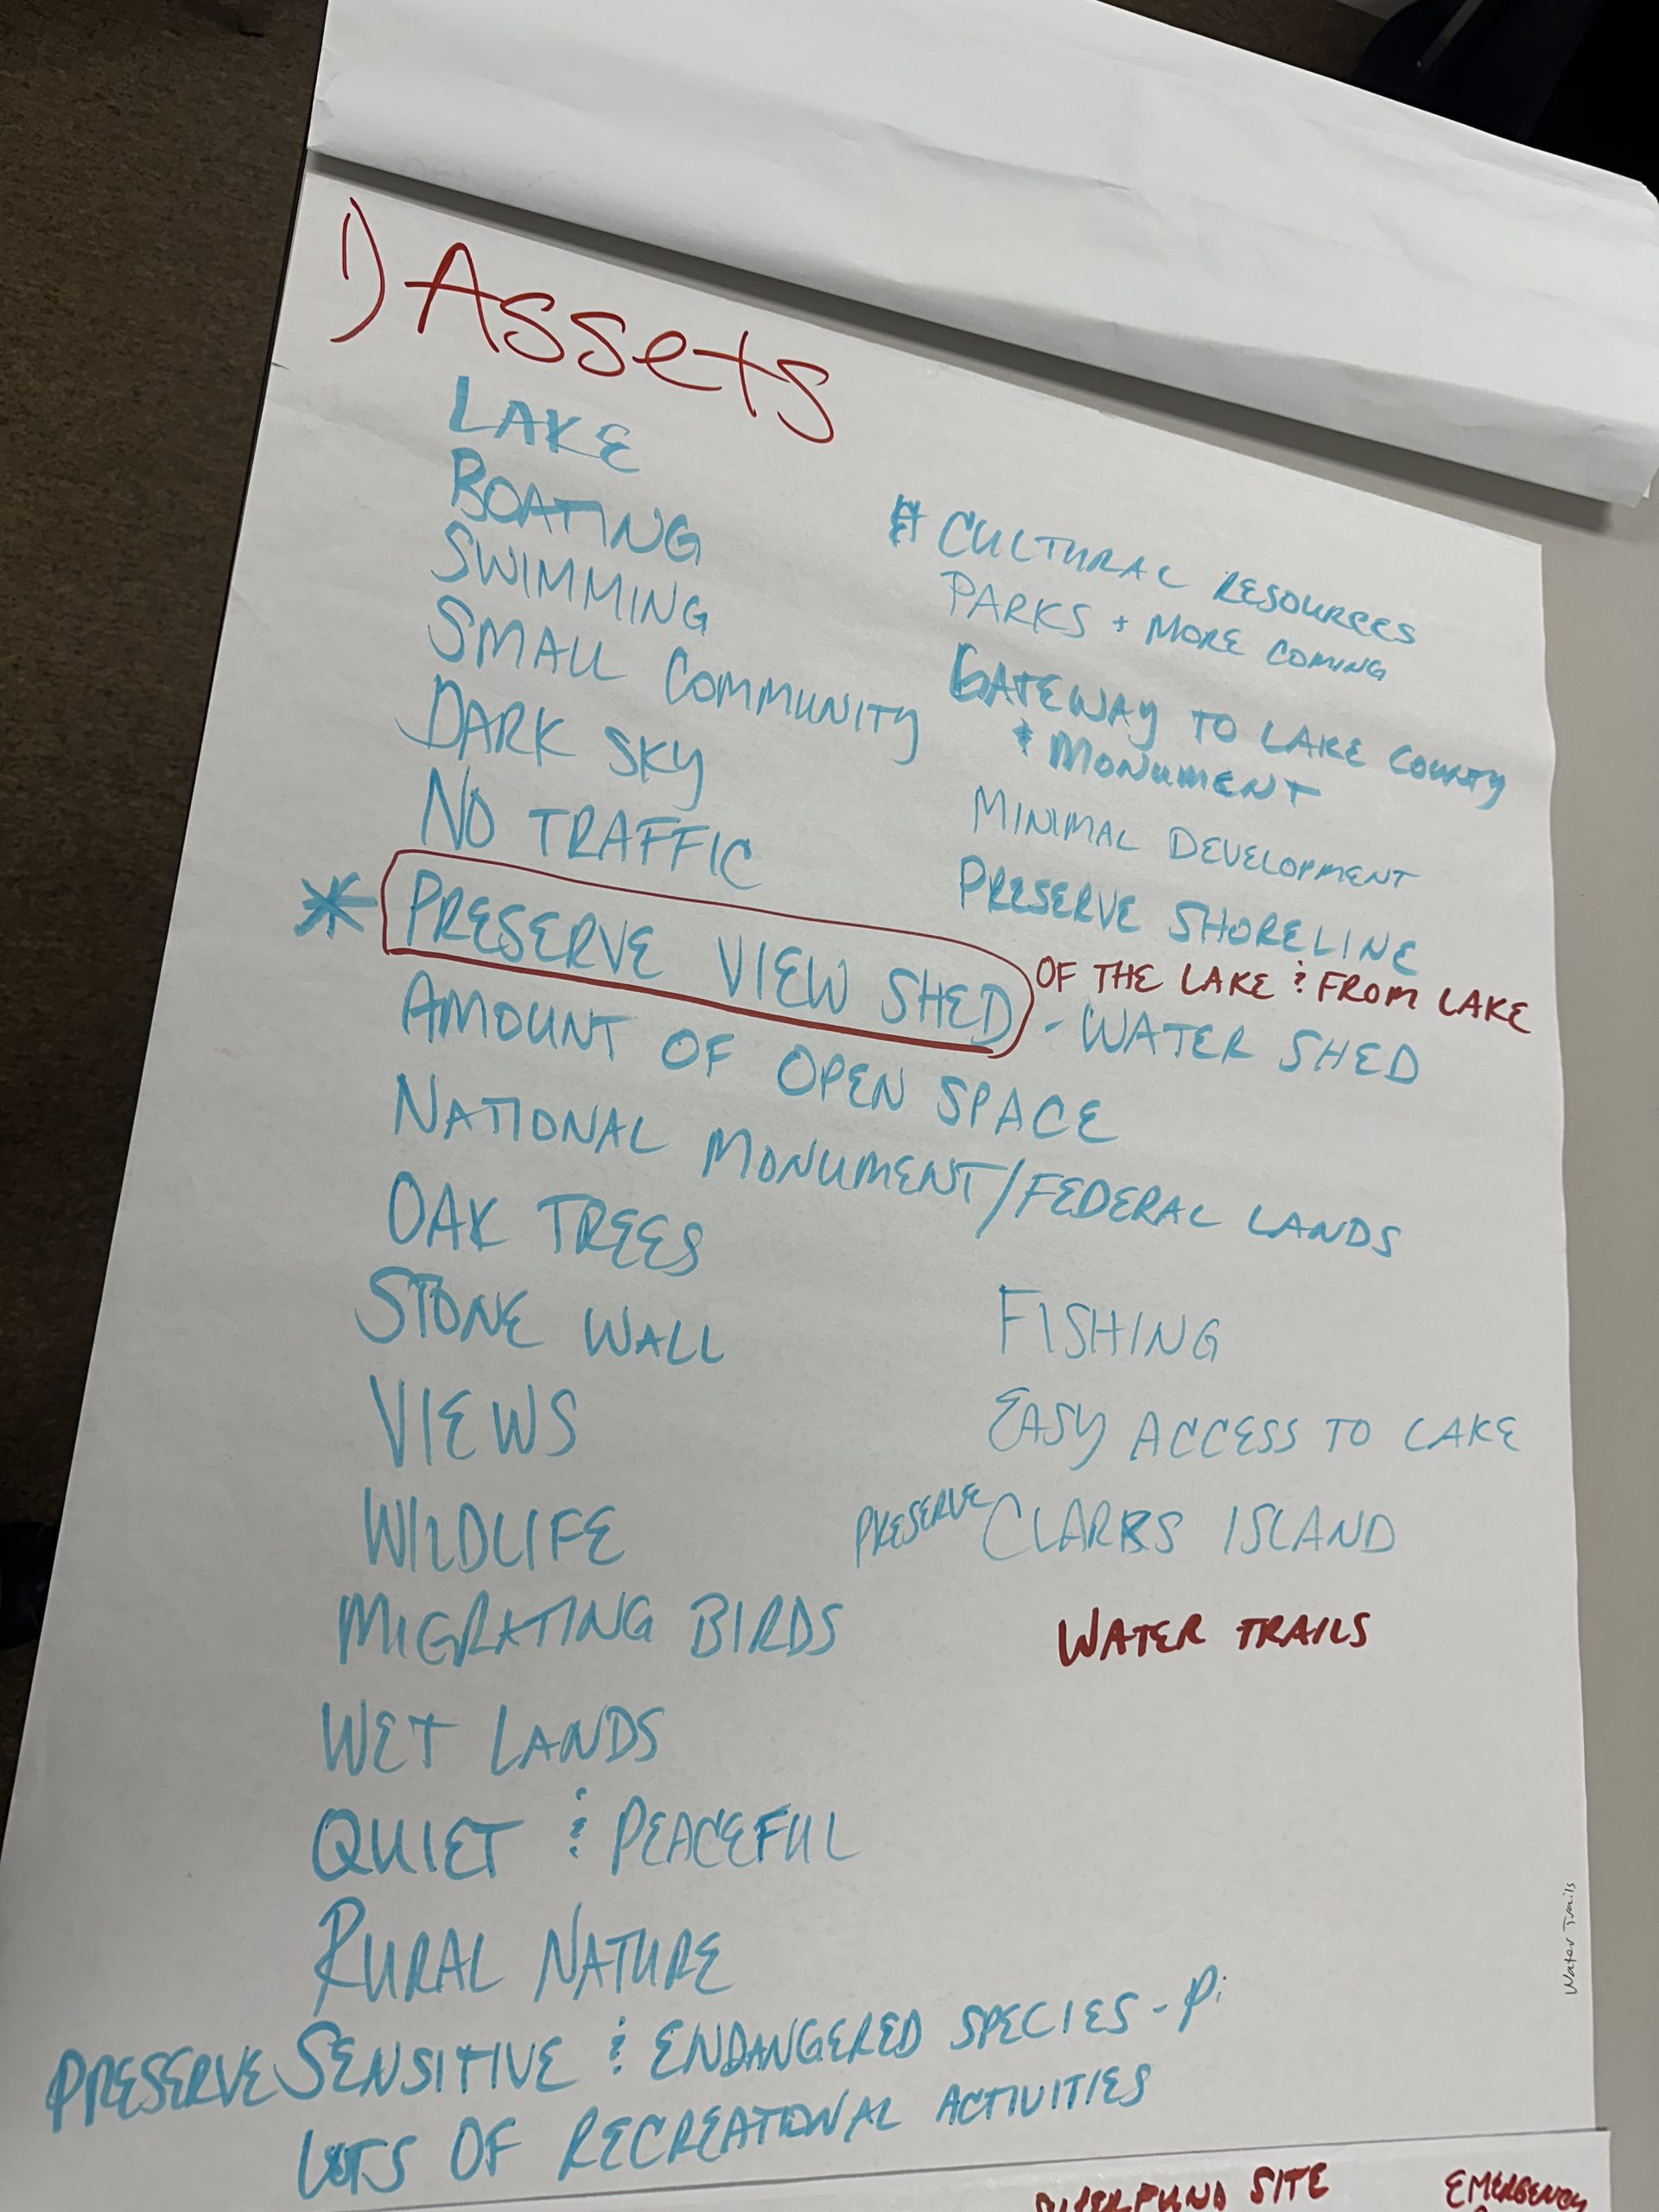 1) Assets
LAKE
BOATING
SWIMMING
SMALL COMMUNITY
DARK SKY
NO TRAFFIC
* PRESERVE VIEW SHED OF THE LAKE & FROM LAKE
- WATER SHED
AMOUNT OF OPEN SPACE
NATIONAL MONUMENT/FEDERAL LANDS
OAK TREES
STONE WALL
VIEWS
WILDLIFE
MIGRATING BIRDS
WET LANDS
QUIET & PEACEFUL
RURAL NATURE
PRESERVE SENSITIVE & ENDANGERED SPECIES - Pi
LOTS OF RECREATIONAL ACTIVITIES
# CULTURAL RESOURCES
PARKS + MORE COMING
GATEWAY TO LAKE COUNTY
& MONUMENT
MINIMAL DEVELOPMENT
PRESERVE SHORELINE
FISHING
EASY ACCESS TO LAKE
PRESERVE CLARKS ISLAND
WATER TRAILS
Water Trails
SUPERFUND SITE
EMERGENCY